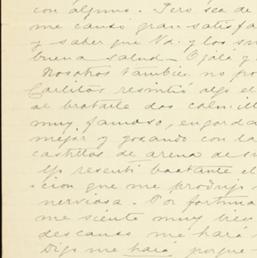 con alguno. Pero sea de
me causó gran satisfa
y saber que Vd. y los su
buena salud. Ojalá y
Nosotros tambien no po
Carlitos resintió algo el
al brotarle dos colmill
muy famoso, engorda
mejor y gozando con la
castillos de arena de su
Yo resentí bastante el
cion que me produjo
nerviosa. Por fortuna
me siento muy bien
descanso me hará
Digo me hará porque